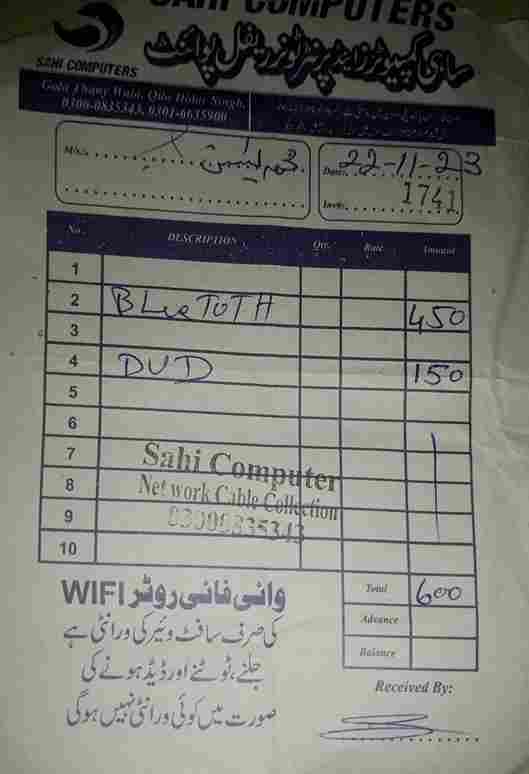 SAHI COMPUTERS
ساہی کمپیوٹرز اینڈ پرنٹر ٹونر ریفل پوائنٹ
SAHI COMPUTERS
Gola Thany Wala, Qila Didar Singh,
0300-0835343, 0301-6635900
M/s.
Date: 22-11-23
Inv#: 1741
No. DESCRIPTION Qty. Rate Amount
1
2 BLueToTH 450
3
4 DVD 150
5
6
7
8
9
10
Sahi Computer
Network Cable Collection
03000835343
Total 600
Advance
Balance
WIFI وائی فائی روٹر
کی صرف سافٹ ویئر کی ورانٹی ہے
جلنے، ٹوٹنے اور ڈیڈ ہونے کی
صورت میں کوئی ورانٹی نہیں ہوگی
Received By: